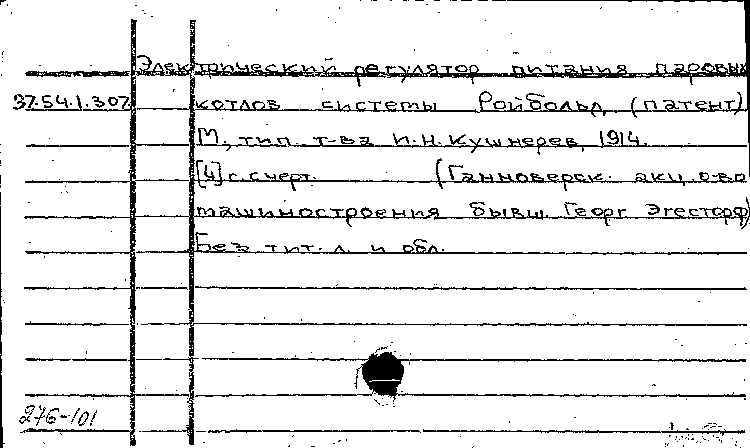 Электрический регулятор питания паровых
37.54.1.307 котлов системы Ройбольд, (патент)
М., тип. т-ва И.Н. Кушнерев, 1914.
[4] с. с черт. (Ганноверск. акц. о-во
машиностроения бывш. Георг Эгесторф)
Без тит. л. и обл.
276-101